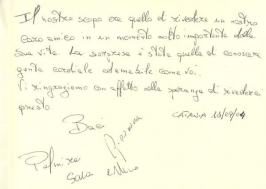 Il nostro scopo era quello di rivedere un nostro
caro amico in un momento molto importante della
sua vita. La sorpresa è stata quella di conoscere
gente cordiale ed amabile come voi.
Vi ringraziamo con affetto nella speranza di rivederci
presto.
CATANIA 13/09/04
Baci
Palmira
Sara